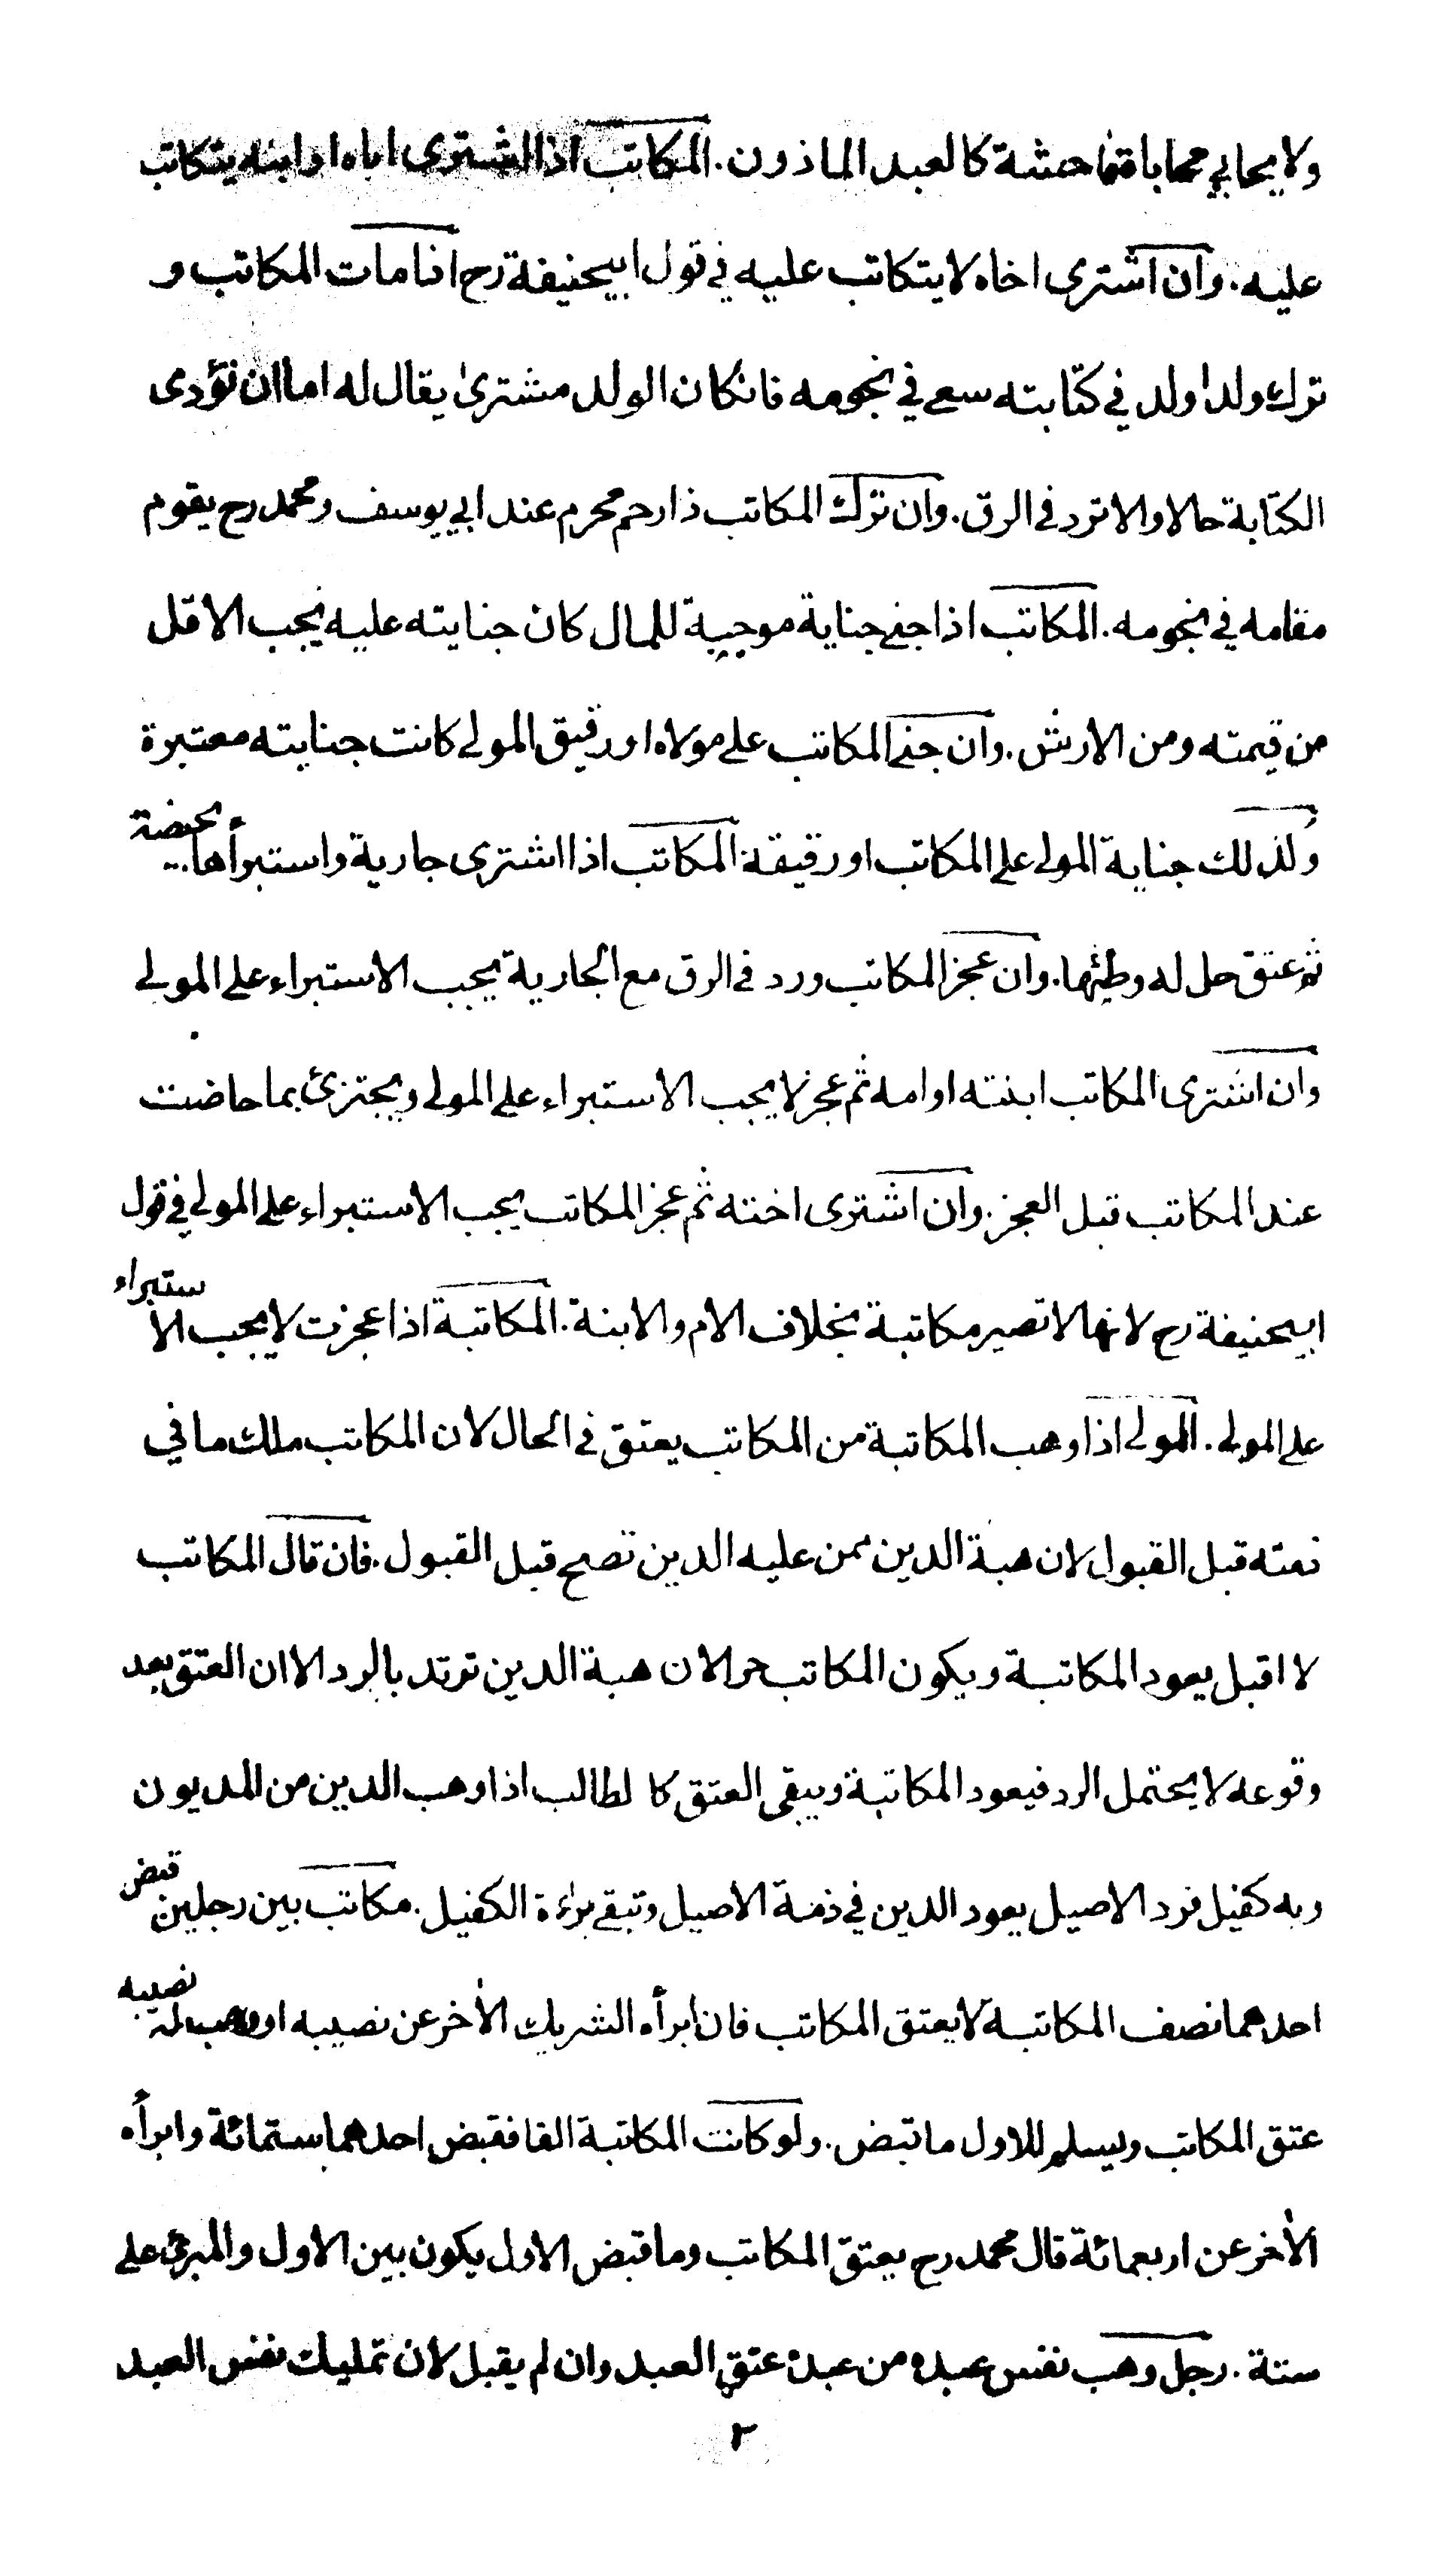 ولا يحابي محاباة فاحشة كالعبد الماذون. المكاتب اذا اشترى اباه او ابنه يتكاتب
عليه. وان اشترى اخاه لا يتكاتب عليه في قول ابيحنيفة رح اذا مات المكاتب و
ترك ولدا ولد في كتابته سعى في نجومه فانكان الولد مشترىٰ يقال له اما ان تؤدى
الكتابة حالا والا ترد في الرق. وان ترك المكاتب ذا رحم محرم عند ابي يوسف ومحمد رح يقوم
مقامه في نجومه. المكاتب اذا جنى جناية موجبة للمال كان جنايته عليه يجب الاقل
من قيمته ومن الارش. وان جنى المكاتب على مولاه او رقيق المولى كانت جنايته معتبرة
وكذلك جناية المولى على المكاتب او رقيقة. المكاتب اذا اشترى جارية واستبرأها بحيضة
ثم عتق حل له وطئها. وان عجز المكاتب ورد في الرق مع الجارية يجب الاستبراء على المولى
وان اشترى المكاتب ابنته او امه ثم عجز لا يجب الاستبراء على المولى ويجتزئ بما حاضت
عند المكاتب قبل العجز. وان اشترى اخته ثم عجز المكاتب يجب الاستبراء على المولى في قول
ابيحنيفة رح لانها لا تصير مكاتبة بخلاف الام والابنة. المكاتبة اذا عجزت لا يجب الاستبراء
على المولى. المولى اذا وهب المكاتبة من المكاتب يعتق في الحال لان المكاتب ملك ما في
ذمته قبل القبول لان هبة الدين ممن عليه الدين تصح قبل القبول. فان قال المكاتب
لا اقبل يعود المكاتبة ويكون المكاتب حرا لان هبة الدين ترتد بالرد الا ان العتق بعد
وقوعه لا يحتمل الرد فيعود المكاتبة ويبقى العتق كا لطالب اذا وهب الدين من المديون
وبه كفيل فرد الاصيل يعود الدين في ذمة الاصيل وتبقى براءة الكفيل. مكاتب بين رجلين قبض
احدهما نصف المكاتبة لا يعتق المكاتب فان ابرأه الشريك الاٰخر عن نصيبه او وهب له نصيبه
عتق المكاتب ويسلم للاول ما قبض. ولو كانت المكاتبة الفا فقبض احدهما ستمائة وابرأه
الاٰخر عن اربعمائة قال محمد رح يعتق المكاتب وما قبض الاول يكون بين الاول والمبرئ على
ستة. رجل وهب نفس عبده من عبده عتق العبد وان لم يقبل لان تمليك نفس العبد
٢